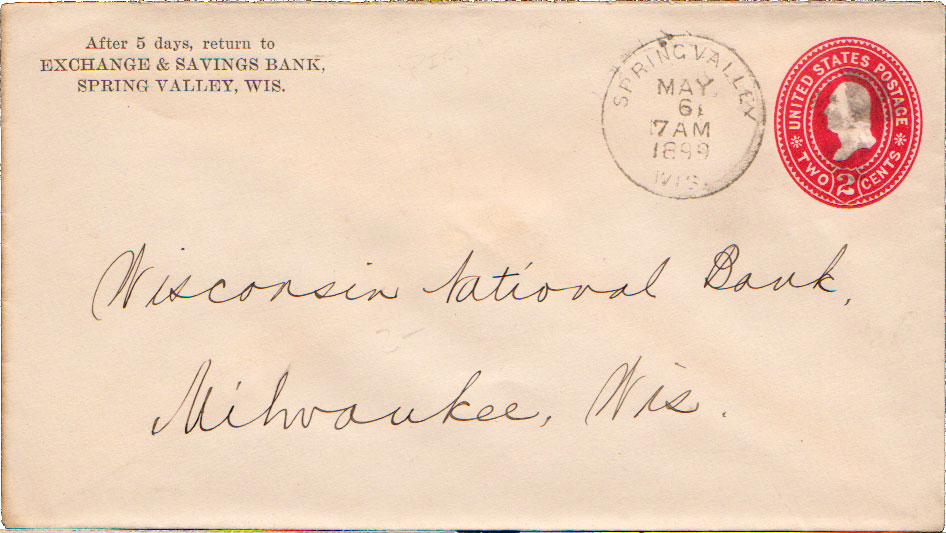 After 5 days, return to
EXCHANGE & SAVINGS BANK,
SPRING VALLEY, WIS.
SPRING VALLEY
MAY
6
7 AM
1899
WIS.
UNITED STATES POSTAGE
TWO 2 CENTS
Wisconsin National Bank,
Milwaukee, Wis.